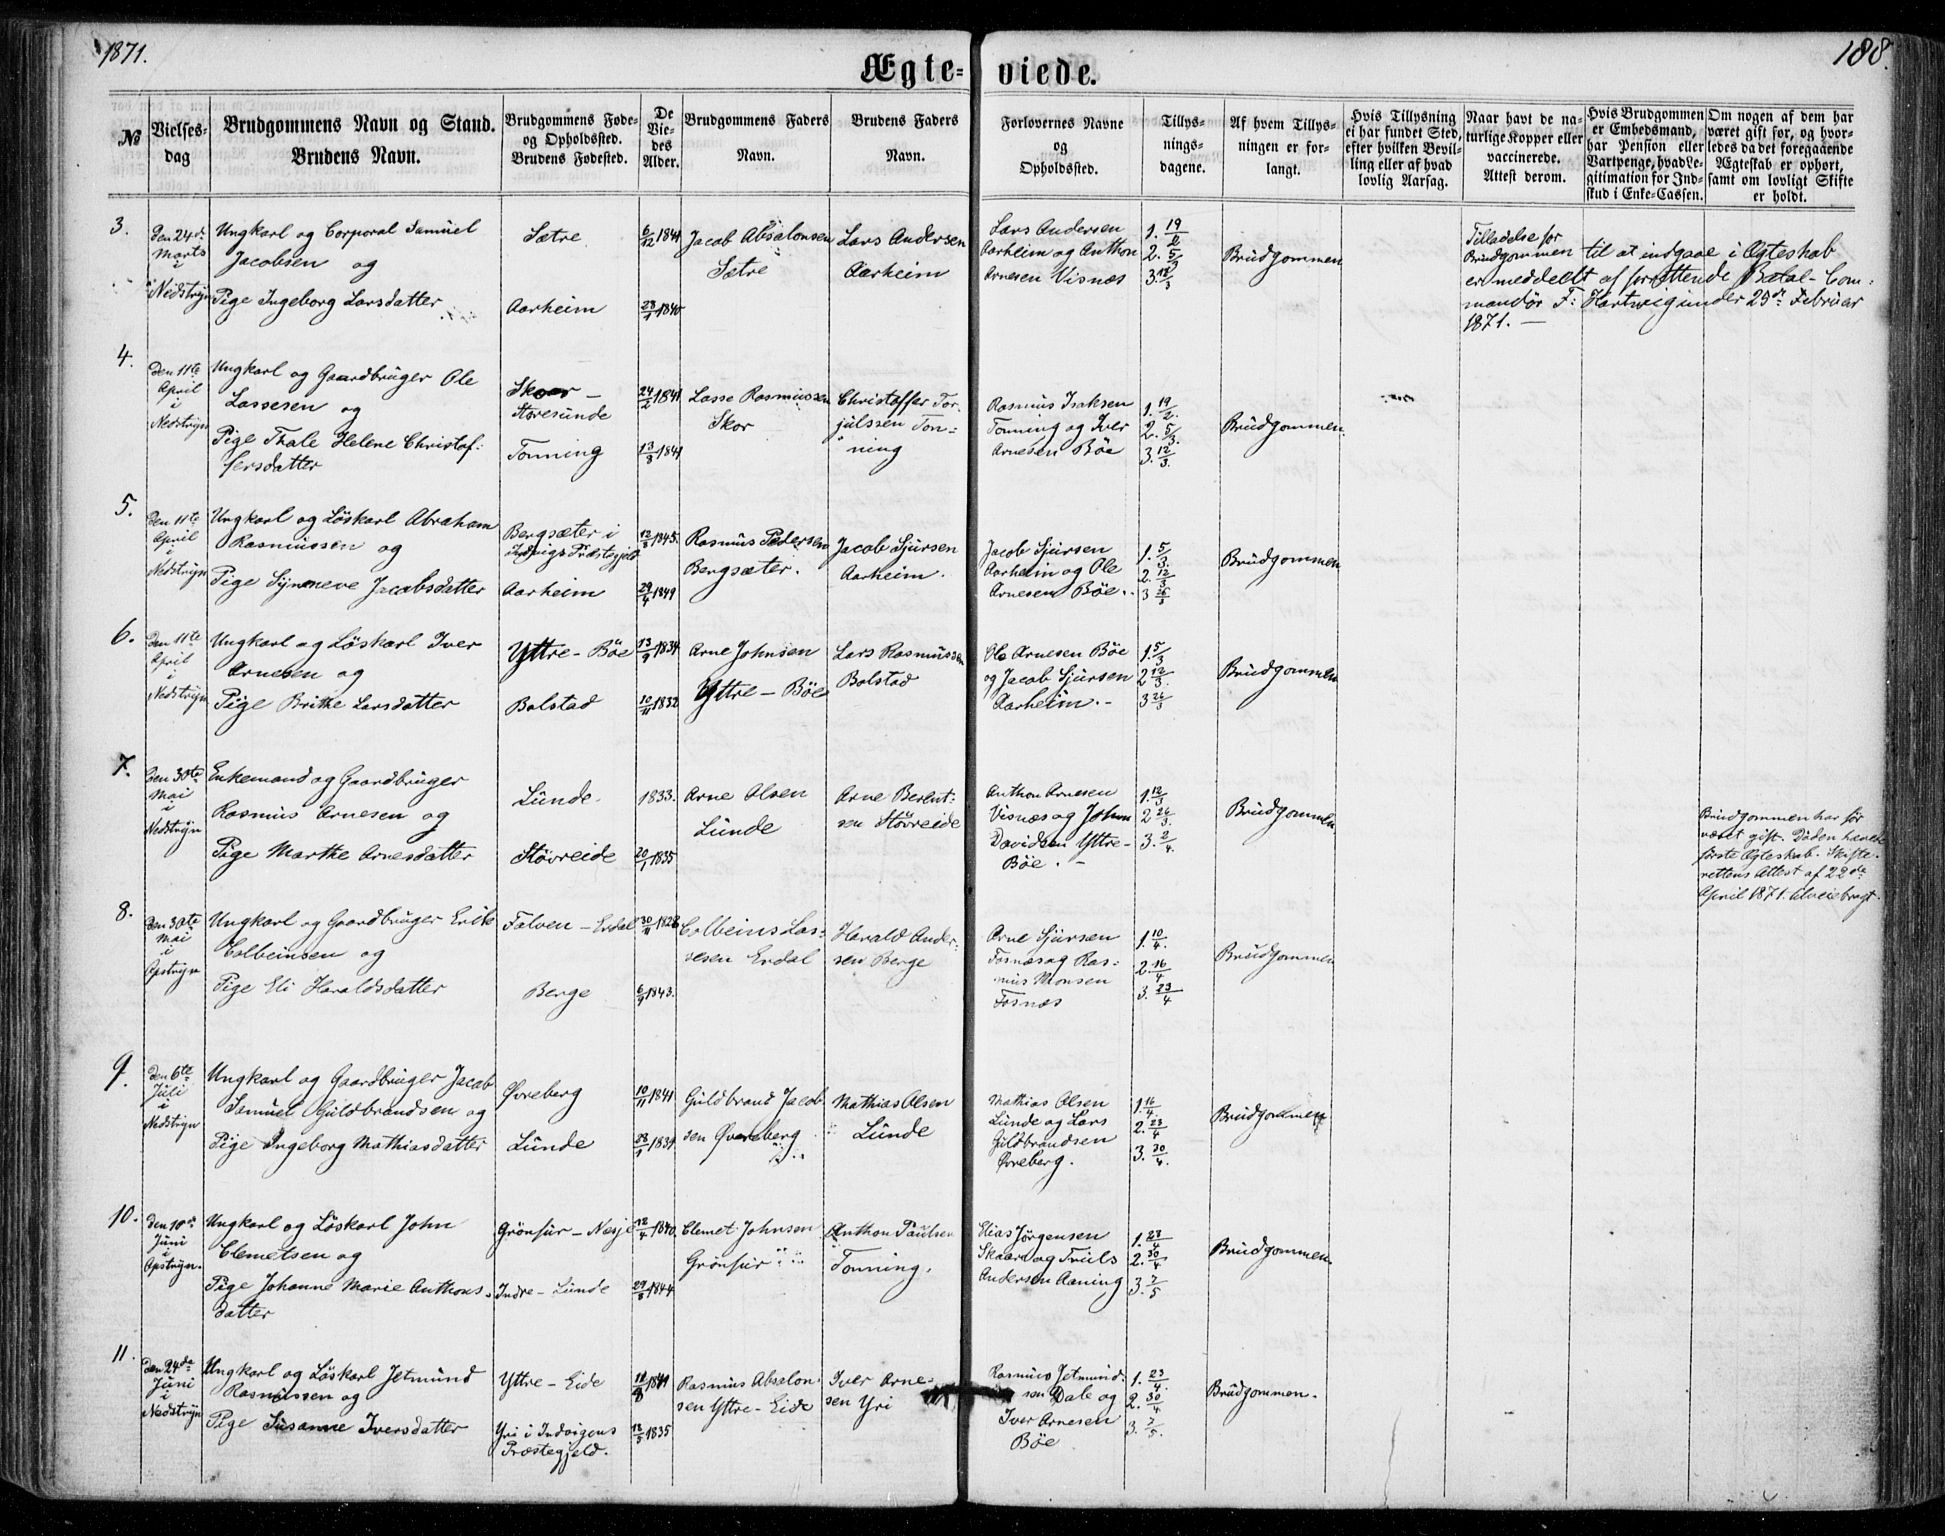 1871.
188.
Ægte-viede.
№
Vielses-dag
Brudgommens Navn og Stand.
Brudens Navn.
Brudgommens Føde-
og Opholdssted.
Brudens Fødested.
De
Vie-
des
Alder.
Brudgommens Faders
Navn.
Brudens Faders
Navn.
Forlovernes Navne
og
Opholdssted.
Tillys-
nings-
dagene.
Af hvem Tillys-
ningen er for-
langt.
Hvis Tillysning
ei har fundet Sted,
efter hvilken Bevil-
ling eller af hvad
lovlig Aarsag.
Naar havt de na-
turlige Kopper eller
vaccinerede.
Attest derom.
Hvis Brudgommen
er Embedsmand,
har Pension eller
Vartpenge, hvad Le-
gitimation for Ind-
skud i Enke-Cassen.
Om nogen af dem har
været gift før, og hvor-
ledes da det foregaaende
Ægteskab er ophørt,
samt om lovligt Skifte
er holdt.
3.
Den 24de
Marts
i
Nedstryn
Ungkarl og Corporal Samuel
Jacobsen og
Pige Ingeborg Larsdatter
Sætre
Aarheim
6/12 1841
23/1 1840
Jacob Absalonsen
Sætre
Lars Andersen
Aarheim
Lars Andersen
Aarheim og Anthon
Arnesen Visnæs
1. 19/2
2. 5/3
3. 12/3
Brudgommen
Tilladelse for
Brudgommen til at indgaae i Ægteskab
er meddeelt af Batal-Com-
mandør F: Hartwig under 25de Februar
1871. —
4.
Den 11te
April
i
Nedstryn
Ungkarl og Gaardbruger Ole
Lassesen og
Pige Thale Helene Christof-
fersdatter
Skor —
Storesunde
Tonning
24/2 1841
13/8 1841
Lasse Rasmussen
Skor
Christoffer Tor-
julssen Ton-
ning
Rasmus Isaksen
Tonning og Iver
Arnesen Böe
1. 19/2.
2. 5/3.
3. 12/3.
Brudgommen.
5.
Den 11te
April
i
Nedstryn
Ungkarl og Löskarl Abraham
Rasmussen og
Pige Synneve Jacobsdatter
Bergsæter i
Indvigs Præstegjeld
Aarheim
12/8 1845.
29/4 1849
Rasmus Pedersen
Bergsæter.
Jacob Sjursen
Aarheim.
Jacob Sjursen
Aarheim og Ole
Arnesen Böe.
1. 5/3.
2. 12/3
3 26/3
Brudgommen
6.
Den 11te
April
i
Nedstryn
Ungkarl og Löskarl Iver
Arnesen og
Pige Brithe Larsdatter
Yttre - Böe
Bolstad
13/9 1834
10/11 1832
Arne Johnsen
Yttre - Böe
Lars Rasmussen
Bolstad
Ole Arnesen Böe
og Jacob Sjursen
Aarheim. -
1 5/3
2 12/3.
3 26/3
Brudgommen
7.
Den 30te
Mai
i
Nedstryn
Enkemand og Gaardbruger
Rasmus Arnesen og
Pige Marthe Arnesdatter
Lunde.
Stövreide
1833.
20/1 1835
Arne Olsen
Lunde
Arne Berent-
sen Stövreide
Anthon Arnesen
Visnæs og Johan
Davidsen Yttre-
Böe. -
1. 12/3
2 26/3.
3. 2/4.
Brudgommen
Brudgommen har för
været gift. Döden hævede
förste Ægteskab. Skifte-
rettens Attest af 22de
April 1871
8.
Den 30te
Mai
i
Opstryn
Ungkarl og Gaardbruger Erik
Colbeinsen og
Pige Eli Haraldsdatter
Folven - Erdal
Berge
30/11 1828
6/9 1843.
Colbeins Las-
sesen Erdal
Harald Ander-
sen Berge
Arne Sjursen
Fosnæs og Ras-
mus Monsen
Fosnæs
1. 10/4.
2. 16/4
3. 23/4
Brudgommen
9.
Den 6te
Juli
i
Nedstryn
Ungkarl og Gaardbruger Jacob
Samuel Guldbrandsen og
Pige Ingeborg Mathiasdatter
Øvreberg
Lunde
10/11 1841
23/1 1839
Guldbrand Jacob-
sen Øvreberg
Mathias Olsen
Lunde
Mathias Olsen
Lunde og Lars
Guldbrandsen
Øvreberg.
1. 16/4.
2. 23/4
3. 30/4.
Brudgommen
10.
Den 10de
Juni
i
Opstryn.
Ungkarl og Löskarl John
Clemetsen og
Pige Johanne Marie Anthons-
datter
Grönfur - Nesje
Indre - Lunde
12/4 1840.
29/8 1844
Clemet Johnsen
Grönfur
Anthon Paulsen
Tonning.
Elias Jörgensen
Skaare og Truls
Andersen Aaning
1. 23/4
2. 30/4
3. 7/5
Brudgommen.
11.
Den 24de
Juni
i
Nedstryn
Ungkarl og Löskarl Jetmund
Rasmussen og
Pige Susanne Iversdatter
Yttre - Eide
Yri i Indvigens
Præstegjeld.
1841
12/5 1835
Rasmus Absalon-
sen Yttre - Eide
Iver Arne-
sen Yri
Rasmus Jetmund-
sen Dale og
Iver Arnesen
Böe
1. 23/4.
2. 30/4
3. 7/5.
Brudgommen.